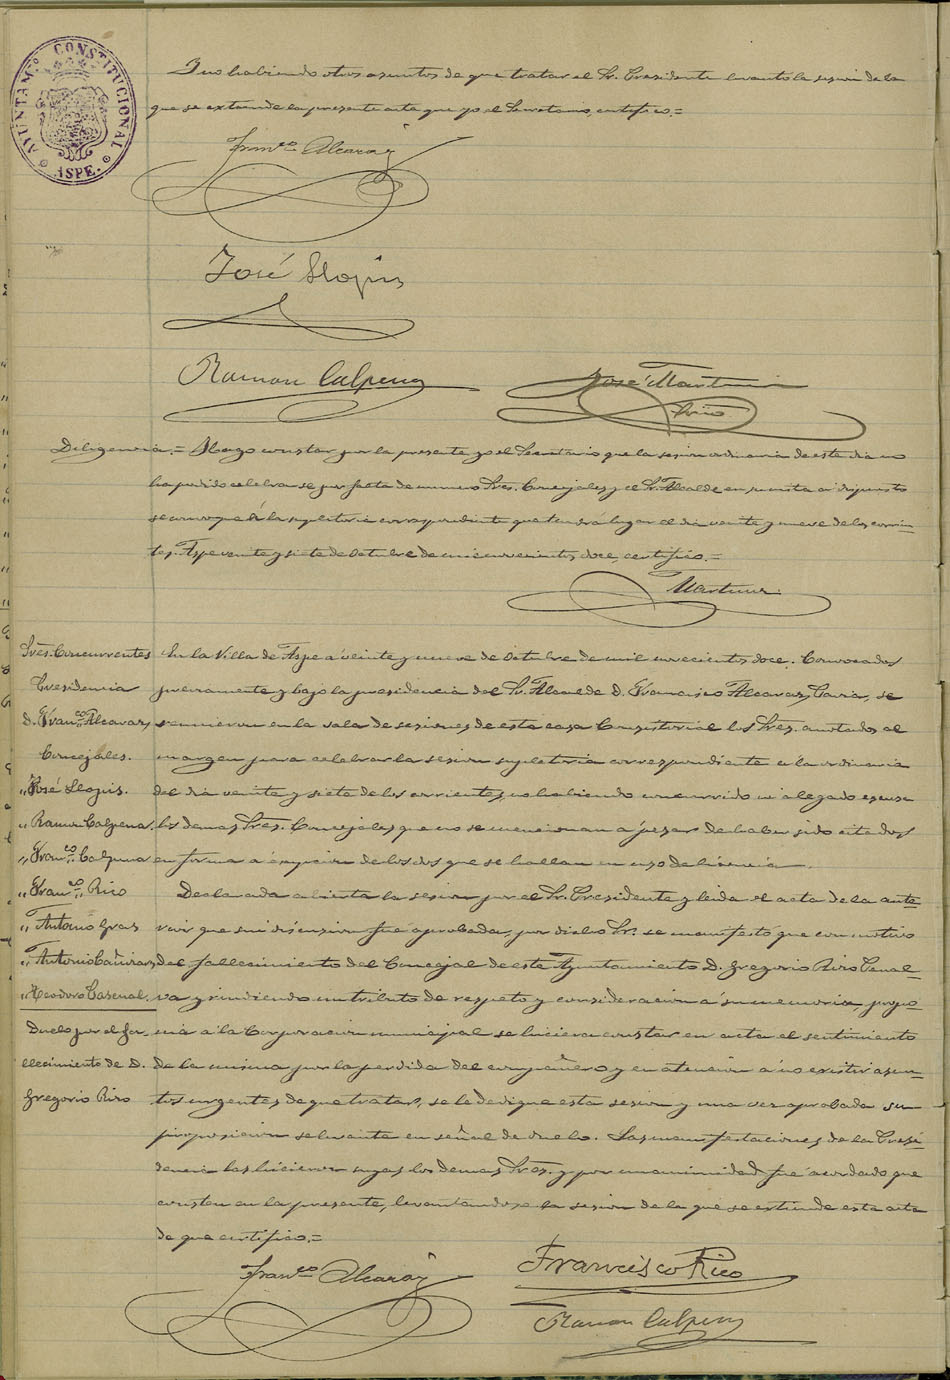 AYUNTAMº CONSTITUCIONAL
ASPE.
Y no habiendo otros asuntos de que tratar el Sr. Presidente levantó la sesion de la
que se extiende la presente acta que yo el Secretario, certifico.=
Franco Alcaraz
José Llopis
Ramon Calpena
José Martinez
Diligencia.= Hago constar por la presente yo el Secretario que la sesion ordinaria de este dia no
ha podido celebrarse por falta de numero Sres. Concejales y el Sr. Alcalde en su vista ha dispuesto
se convoque á la supletoria correspondiente que tendrá lugar el dia veinte y nueve de los corrien-
tes. Aspe veinte y siete de Octubre de mil novecientos doce, certifico.=
Martinez
Sres. Concurrentes
Presidencia
D. Franco Alcaraz
Concejales.
„ José Llopis.
„ Ramon Calpena
„ Franco Calpena
„ Franco Rico
„ Antonio Gras
„ Antonio Cañizares
„ Teodoro
Duelo por el fa-
llecimiento de D.
Gregorio Rizo
En la Villa de Aspe a veinte y nueve de Octubre de mil novecientos doce. Convocados
previamente y bajo la presidencia del Sr. Alcalde D. Francisco Alcaraz, se
reunieron en la sala de sesiones de esta casa Consistorial los Sres. anotados al
margen para celebrar la sesion supletoria correspondiente a la ordinaria
del dia veinte y siete de los corrientes, no habiendo concurrido ni alegado escusa
los demas Sres. Concejales que no se mencionan a pesar de haber sido citados
en forma a escepcion de los dos que se hallan en uso de licencia.
Declarada abierta la sesion por el Sr. Presidente y leida el acta de la ante-
rior que sin discusion fué aprobada, por dicho Sr. se manifestó que con motivo
del fallecimiento del Concejal de este Ayuntamiento D. Gregorio Rizo Penal-
va y rindiendo un tributo de respeto y consideracion á su memoria, propo-
nia á la Corporacion municipal se hiciera constar en acta el sentimiento
de la misma por la perdida del compañero y en atencion á no existir asun-
tos urgentes de que tratar, se le dedique esta sesion y una vez aprobada su
proposicion se levante en señal de duelo. Las manifestaciones de la Presi-
dencia las hicieron suyas los demas Sres. y por unanimidad fué acordado que
consten en la presente, levantandose la sesion de la que se estiende esta acta
de que certifico.=
Franco Alcaraz
Francisco Rico
Ramon Calpena